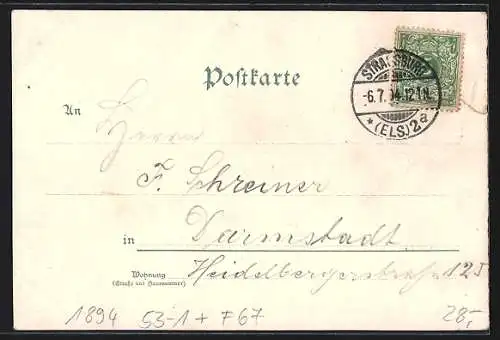 Postkarte
STRASSBURG
-6.7.94.12-1N.
* (ELS) 2a
An
Herrn
F. Schreiner
in Darmstadt
Wohnung
(Straße und Hausnummer)
Heidelbergerstraße 125
1894 53-1 + F67 28,-